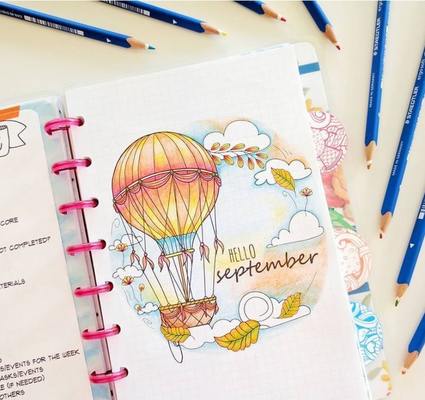 CORE
OT COMPLETED?
ATERIALS
S/EVENTS FOR THE WEEK
ASKS/EVENTS
E (IF NEEDED)
OTHERS
HELLO
september
STAEDTLER
STAEDTLER